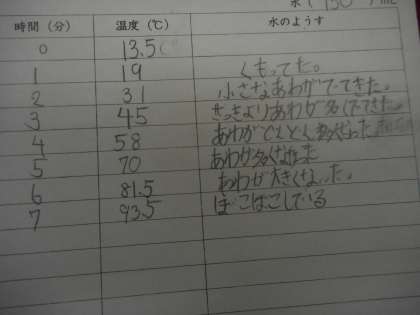 水(150)mL
時間(分) 温度(℃) 水のようす
0 13.5
1 19 くもってた。
2 31 小さなあわがでてきた。
3 45 さっきよりあわが多くでてきた。
4 58 あわがどんどん
5 70 あわが多くなった
6 81.5 あわが大きくなった。
7 93.5 ぼこぼこしている